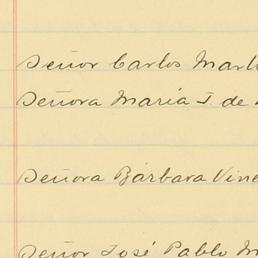 Señor Carlos
Señora María I. de
Señora Bárbara
Señor José Pablo